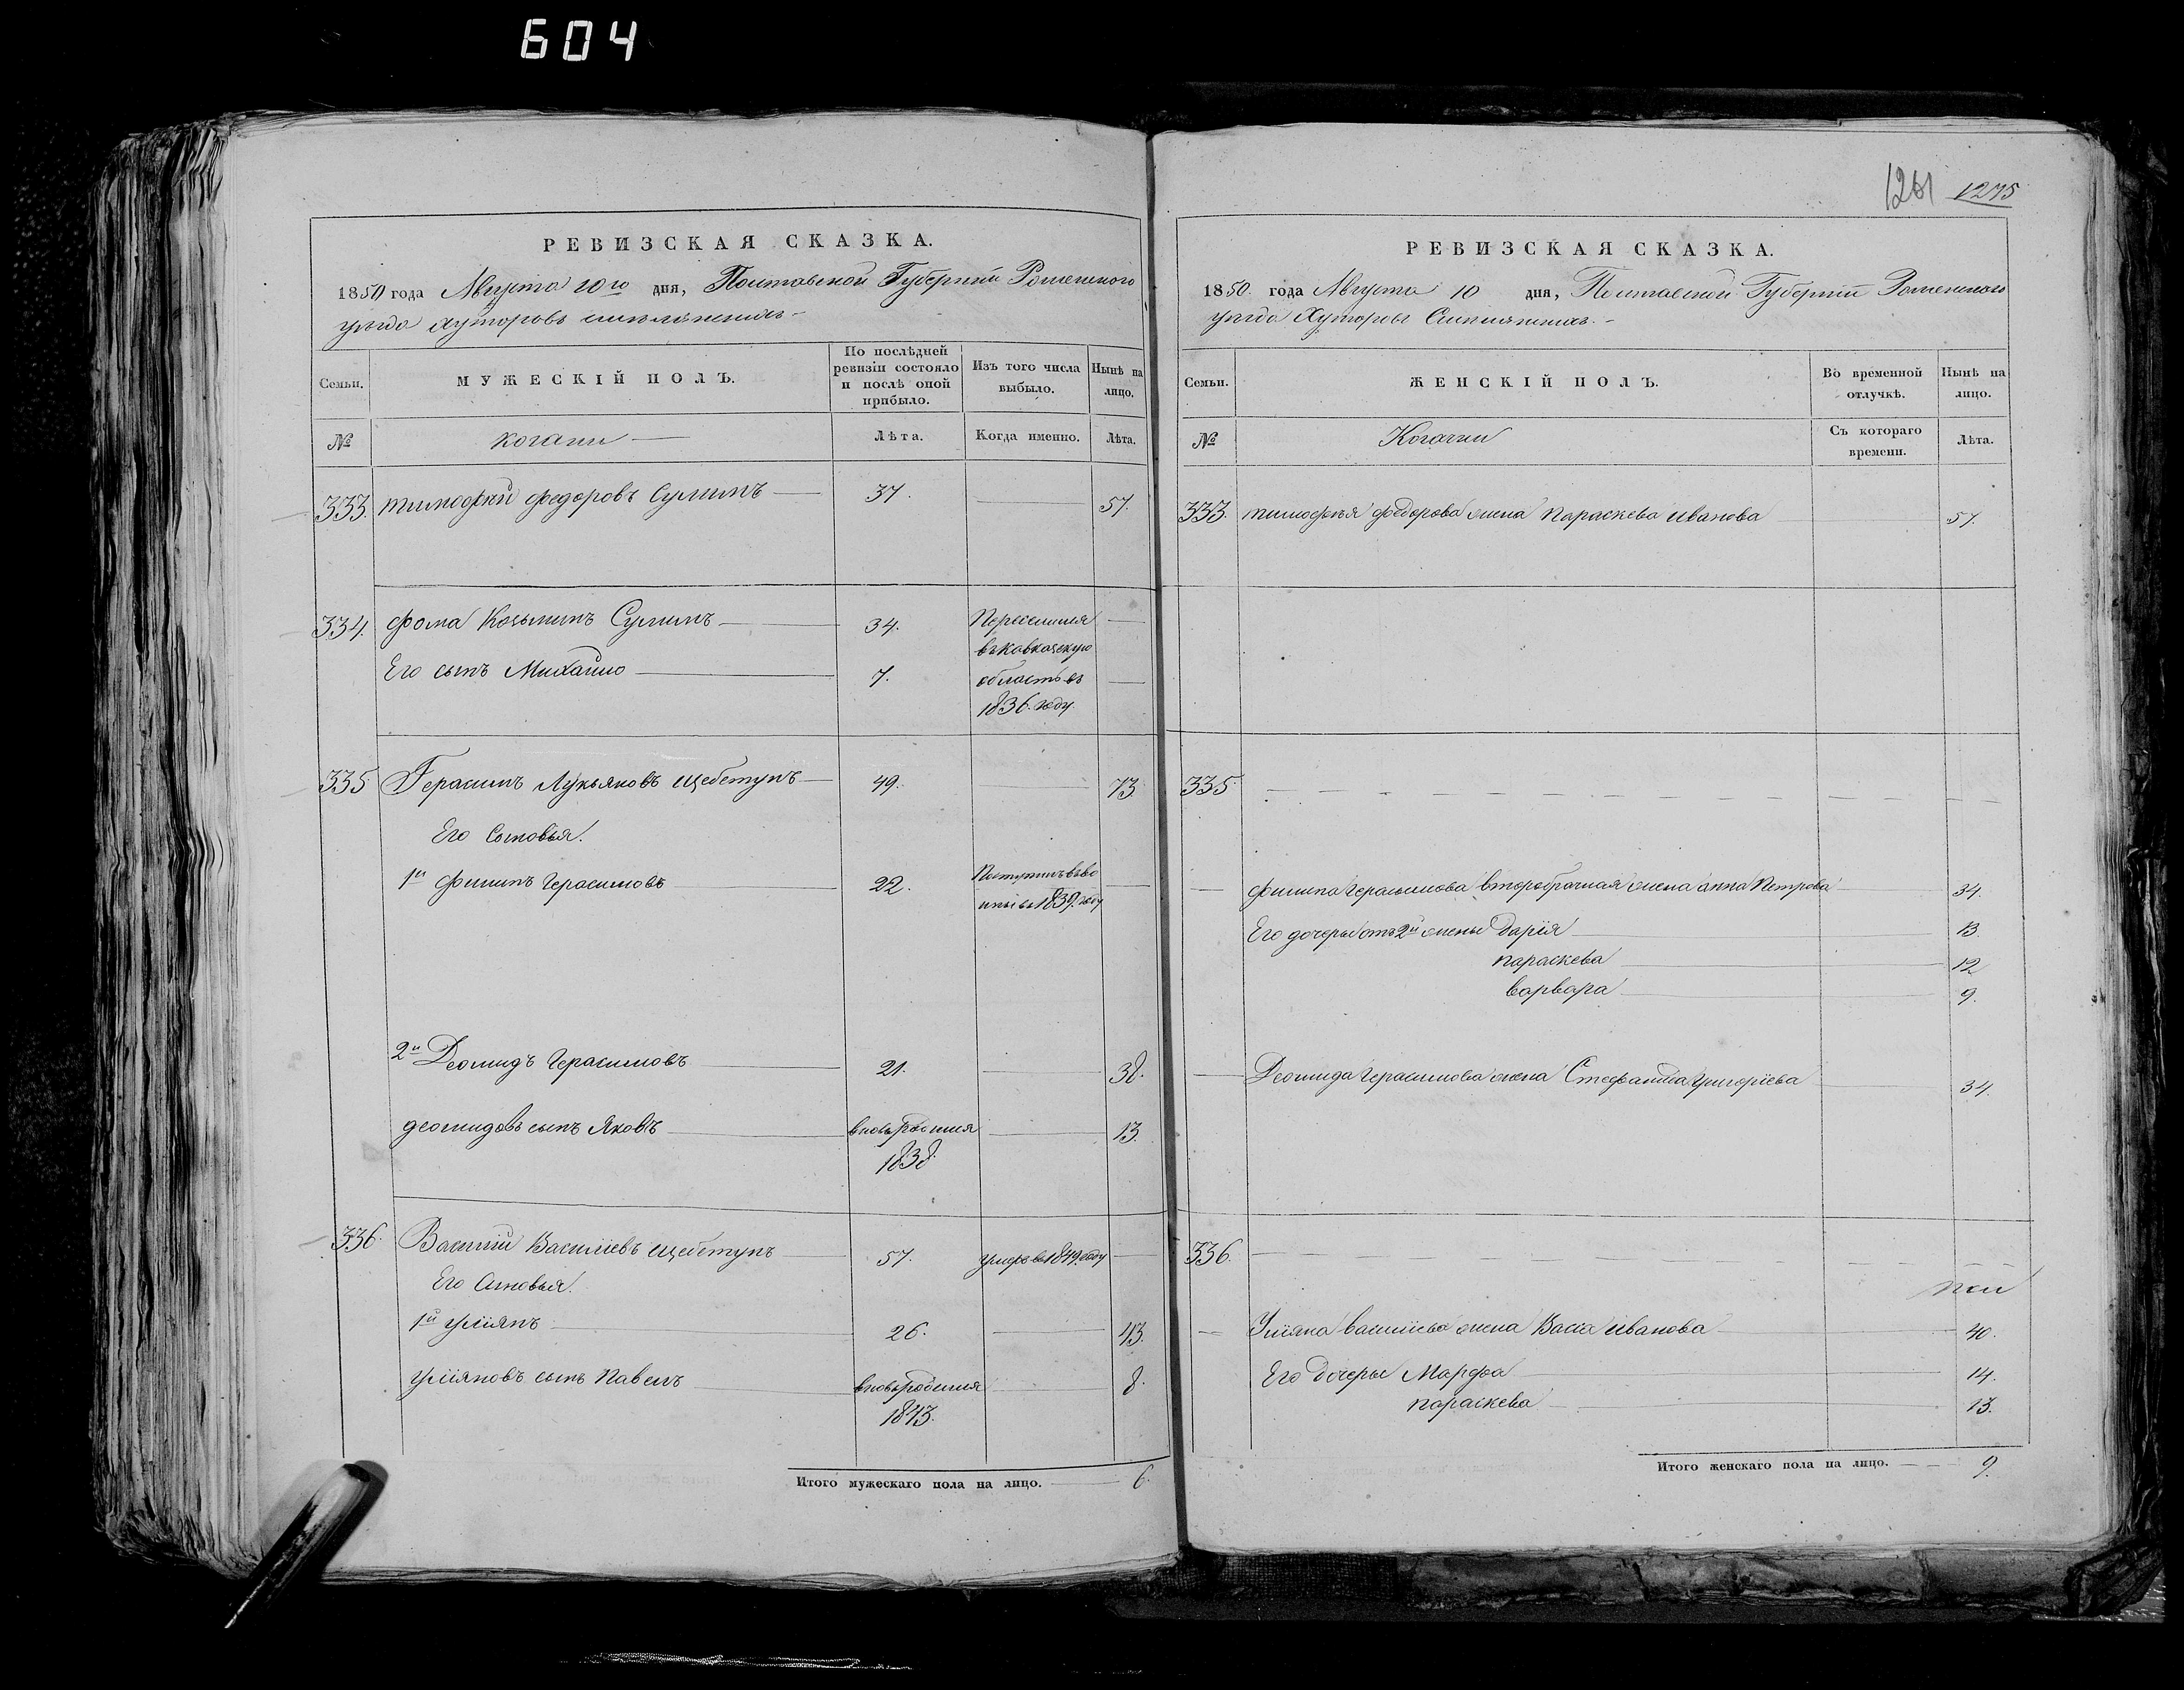 604
РЕВИЗСКАЯ СКАЗКА.
1850 года Августа 10го дня, Полтавской Губерніи Роменского
уезда хуторовъ
Семьи.
МУЖЕСКІЙ ПОЛЪ.
По послѣдней ревизіи состояло и послѣ оной прибыло.
Изъ того числа выбыло.
Нынѣ на лицо.
№
козаки
Лѣта.
Когда именно.
Лѣта.
333. тимофей федоровъ Сулимъ 37. 57.
334. фома Козьминъ Сулимъ 34. Переселился
въ Кавказскую
Его сынъ Михайло 7. область въ
1836. году.
335 Герасимъ Лукьяновъ щебетунъ 49. 73
Его Сыновья.
1й филипъ Герасимовъ 22. 1839. году
2й Деомидъ Герасимовъ 21. 38.
деомидовъ сынъ Яковъ вновь родился 13.
1838
336. Василий Василіевъ щебетунъ 57. умеръ въ 1849. году
Его Сыновья.
1й уліянъ 26. 43.
уліяновъ сынъ Павелъ вновь родился 8.
1843.
Итого мужескаго пола на лицо. 6.
1261 1275
РЕВИЗСКАЯ СКАЗКА.
1850. года Августа 10 дня, Полтавской Губерніи Роменского
уезда Хуторовъ
Семьи.
ЖЕНСКІЙ ПОЛЪ.
Во временной отлучкѣ.
Нынѣ на лицо.
№
Козачки
Съ котораго времени.
Лѣта.
333. тимофея федорова жена параскева иванова 57.
335
филипа Герасимова второбрачная жена анна Петрова 34.
Его дочеры отъ 2й жены Дарія 13
параскева 12
варвара 9.
Деомида Герасимова жена Стефанида григоріева 34.
336.
Уліяна василіева жена Васса иванова 40.
Его Дочеры Марфа 14.
параскева 13.
Итого женскаго пола на лицо. 9.